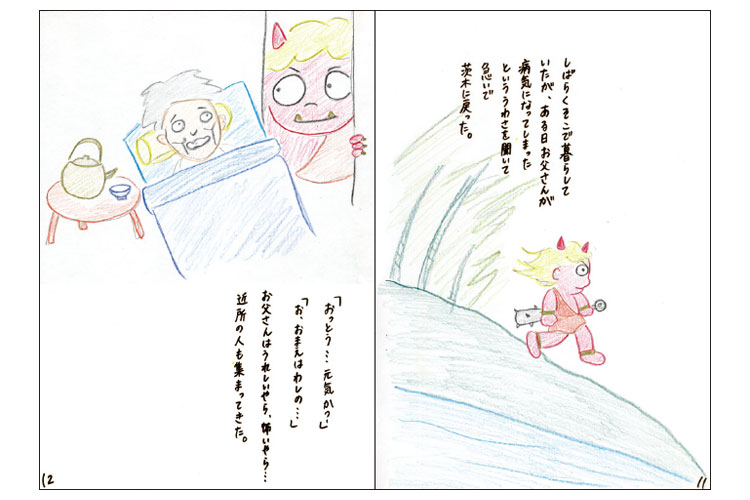 しばらくそこで暮らして
いたが、ある日お父さんが
病気になってしまった
といううわさを聞いて
急いで
茨木に戻った。
11
「おっとう…元気かっ」
「お、おまえはわしの…」
お父さんはうれしいやら、怖いやら…
近所の人も集まってきた。
12